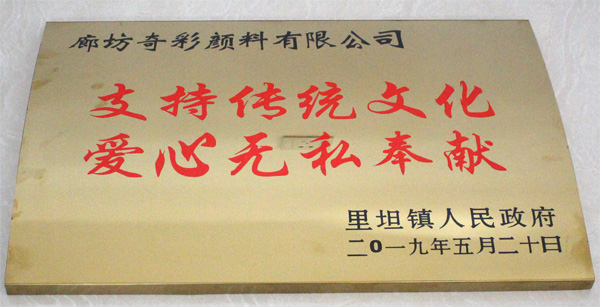 廊坊奇彩颜料有限公司
支持传统文化
爱心无私奉献
里坦镇人民政府
二0一九年五月二十日